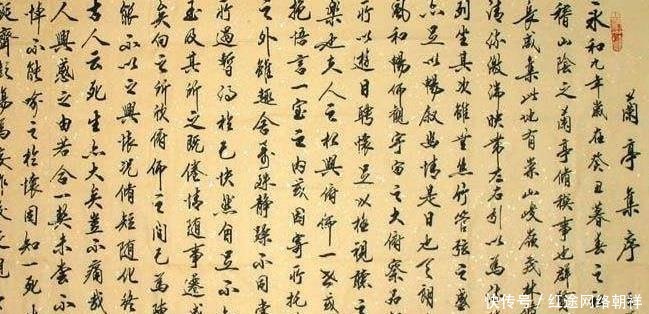 蘭亭集序
永和九年歲在癸丑暮春之
稽山陰之蘭亭脩稧事也群
長咸集此地有崇山峻嶺茂林
清流激湍映帶左右引以為流
列坐其次雖無絲竹管弦之盛
亦足以暢敘幽情是日也天朗
風和暢仰觀宇宙之大俯察品
所以遊目騁懷足以極視聽之
樂也夫人之相與俯仰一世或
抱悟言一室之內或因寄所託
之外雖趣舍萬殊靜躁不同當
所遇暫得於己快然自足不
及其所之既倦情隨事遷感
矣向之所欣俯仰之間已為陳
能不以之興懷況脩短隨化終
古人云死生亦大矣豈不痛哉
人興感之由若合一契未嘗不
悼不能喻之於懷固知一死
齊彭殤為妄作後之視
快传号/红途网络朝祥